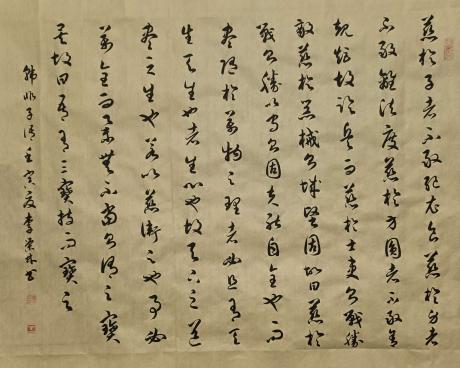 慈於子者不敢絕衣食慈於身者
不敢離法度慈於方圓者不敢舍
規矩故臨兵而慈於士吏則戰勝
敵慈於器械則城堅固故曰慈於
戰則勝以守則固夫能自全也而
盡隨於萬物之理者必且有天
生天生也者生心也故天下之道
盡之生也若以慈衛之也事必
萬全而舉無不當則謂之寶
矣故曰吾有三寶持而寶之
韓非子語壬寅夏李林書